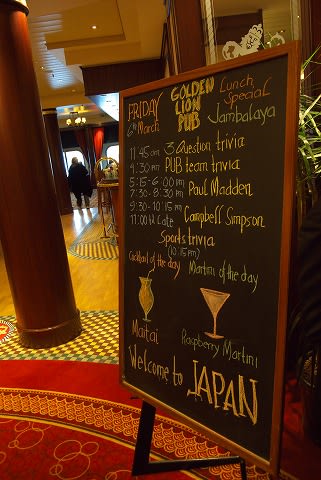 FRIDAY
6th March
GOLDEN
LION
PUB
Lunch
Special
Jambalaya
11:45 am 3 Question trivia
4:30 pm PUB team trivia
5:15-6:00 pm
7:30-8:30 pm Paul Madden
9:30-10:15 pm
11:00 til Late Campbell Simpson
Sports trivia
(10:15 pm)
Cocktail of the day
Martini of the day
Maitai
Raspberry Martini
Welcome to JAPAN